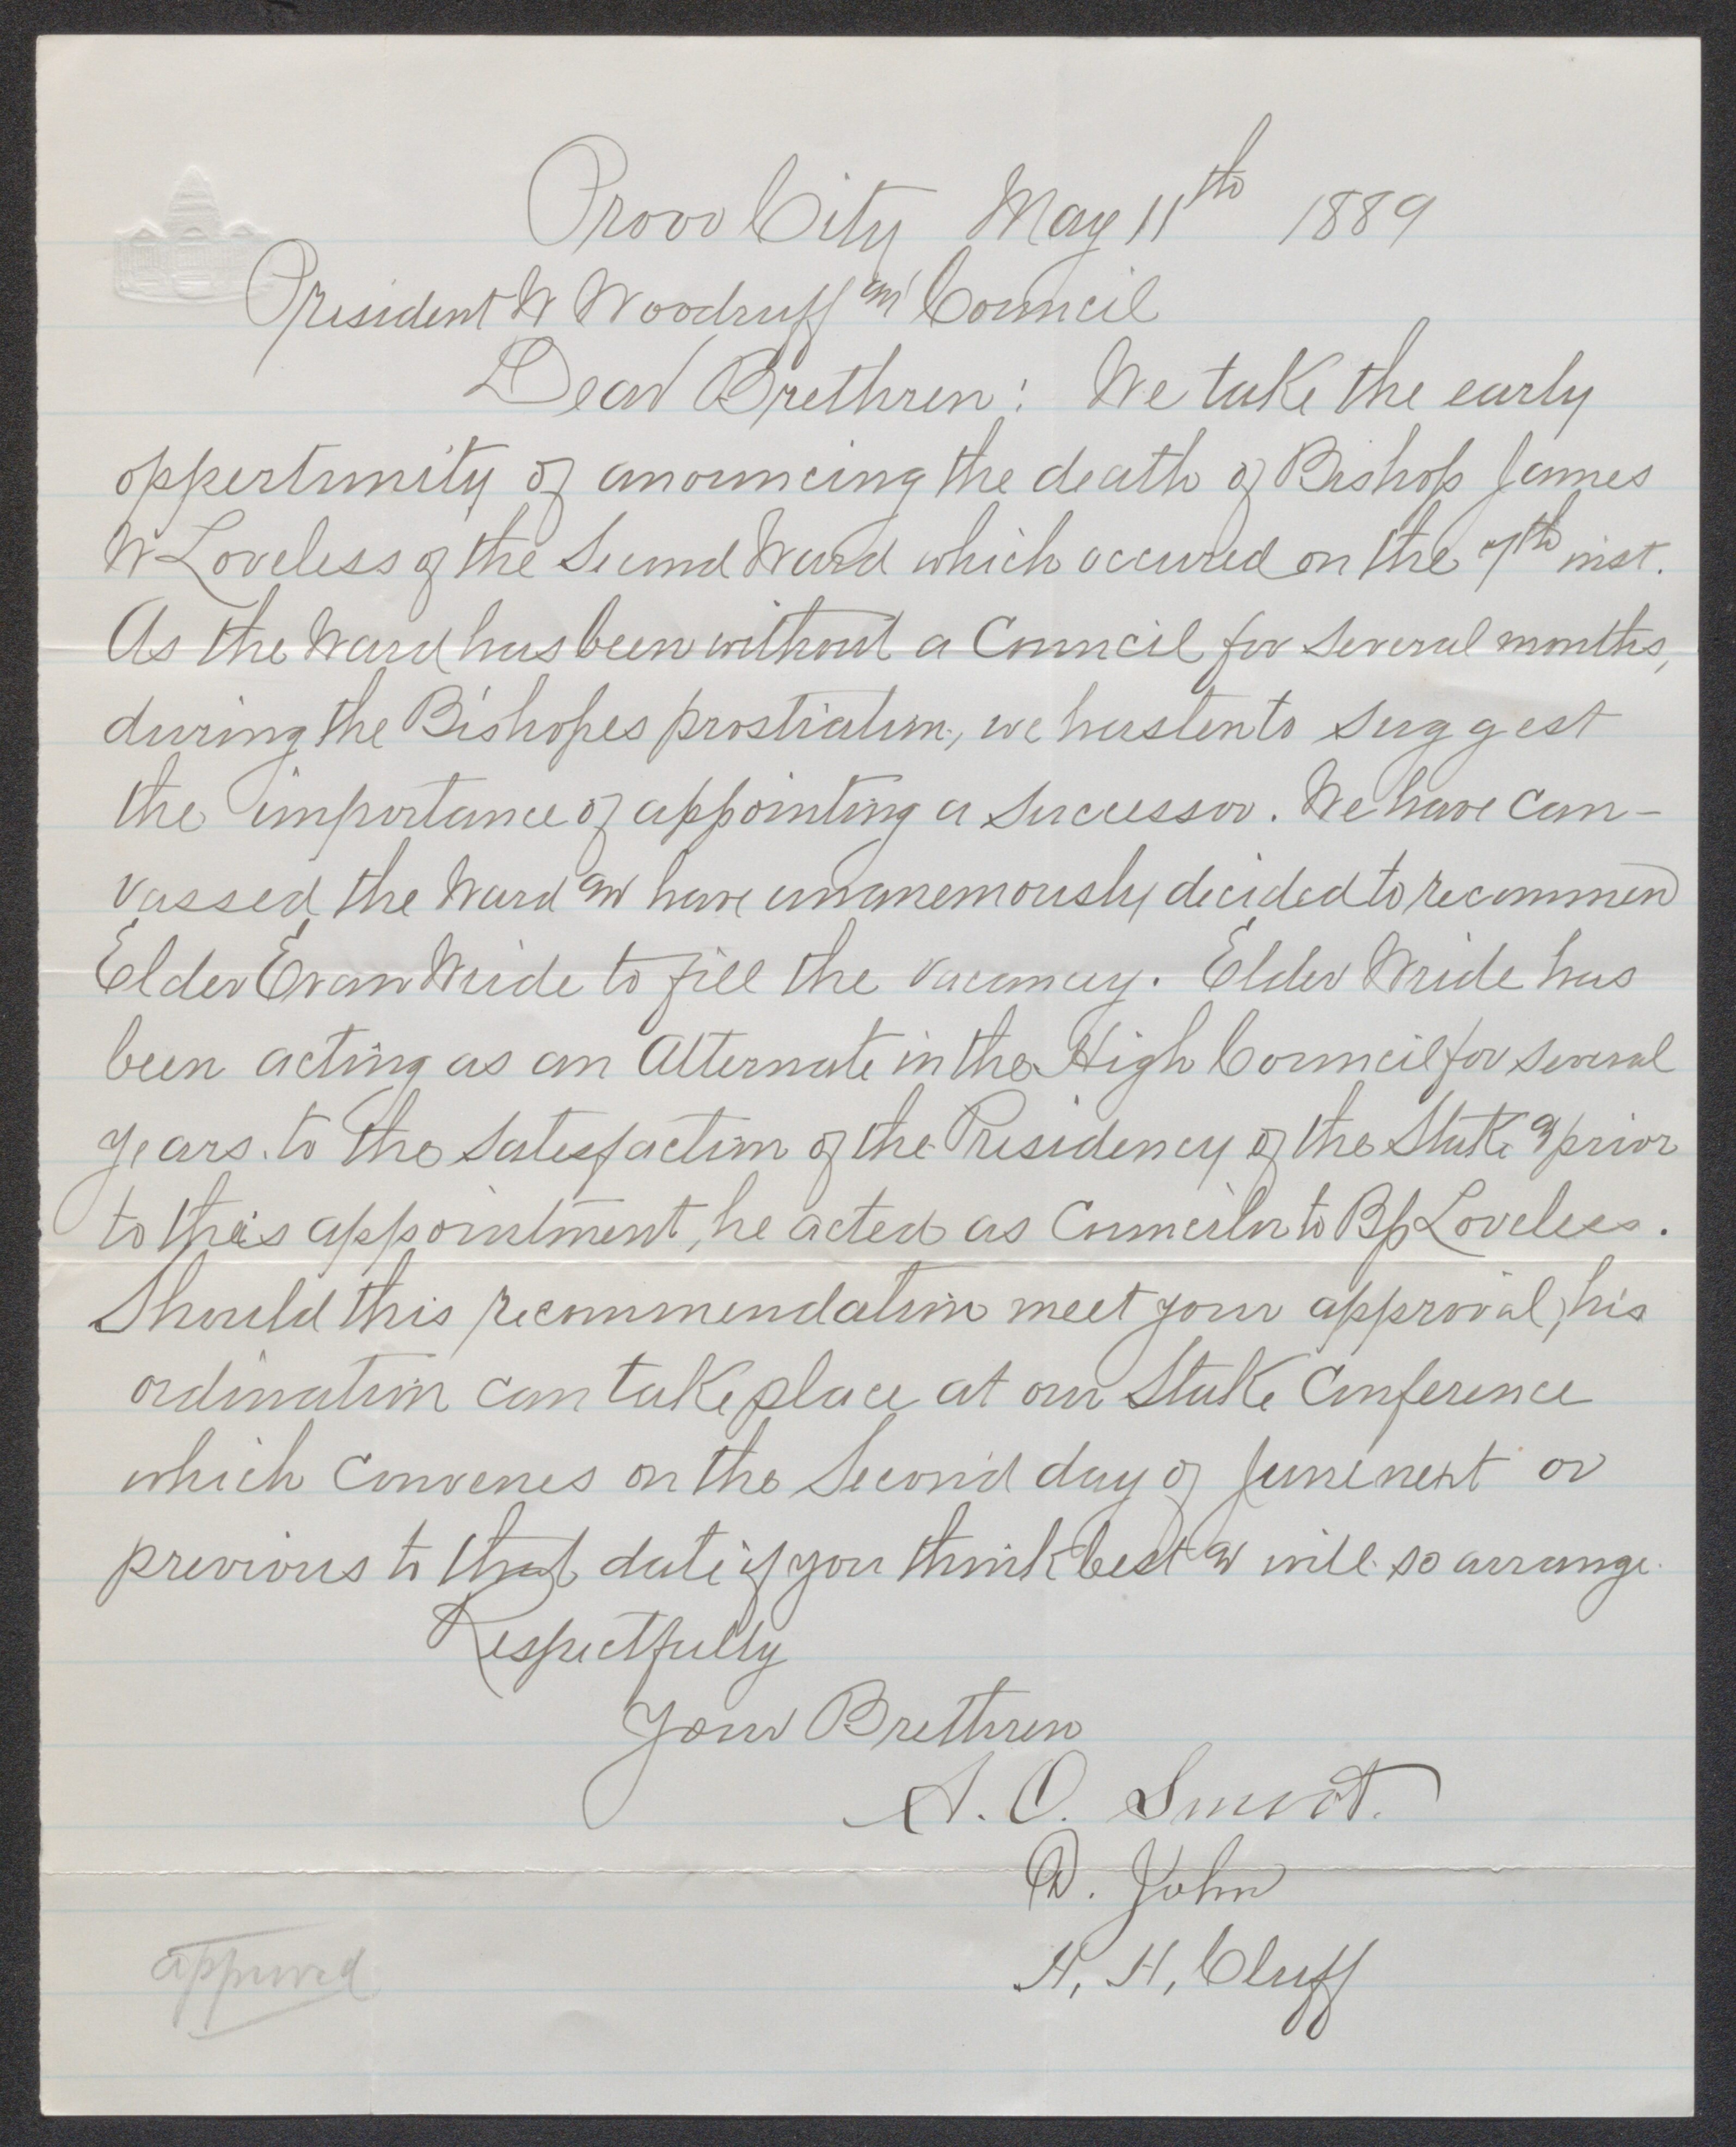 Provo City May 11th 1889
President W Woodruff and Council
Dear Brethren: We take the early
oppertunity of anouncing the death of Bishop James
W Loveless of the Second Ward which occured on the 7th inst.
As the Ward has been without a Council for several months,
during the Bishopes prostration, we hasten to suggest
the importance of appointing a successor. We have can-
vassed the Ward and have unanemously decided to recommend
Elder Evan Wride to fill the vacancy. Elder Wride has
been acting as an Alternate in the High Council for several
years. to the satesfaction of the Presidency of the Stake & prior
to this appointment, he acted as Councilor to Bp Loveless.
Should this recommendation meet your approval, his
ordination can take place at our Stake Conference
which convenes on the Second day of June next or
previous to that date if you think best and will so arrange.
Respectfully
Your Brethren
A. O. Smoot.
D. John
H. H. Cluff
approved